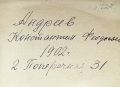 Андреев
Константин
1902 г.
2 Поперечная 31